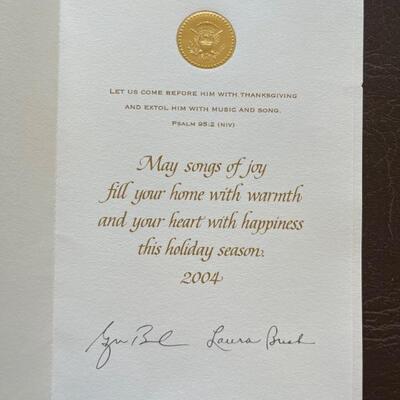 LET US COME BEFORE HIM WITH THANKSGIVING
AND EXTOL HIM WITH MUSIC AND SONG.
PSALM 95:2 (NIV)
May songs of joy
fill your home with warmth
and your heart with happiness
this holiday season.
2004
Laura Bush